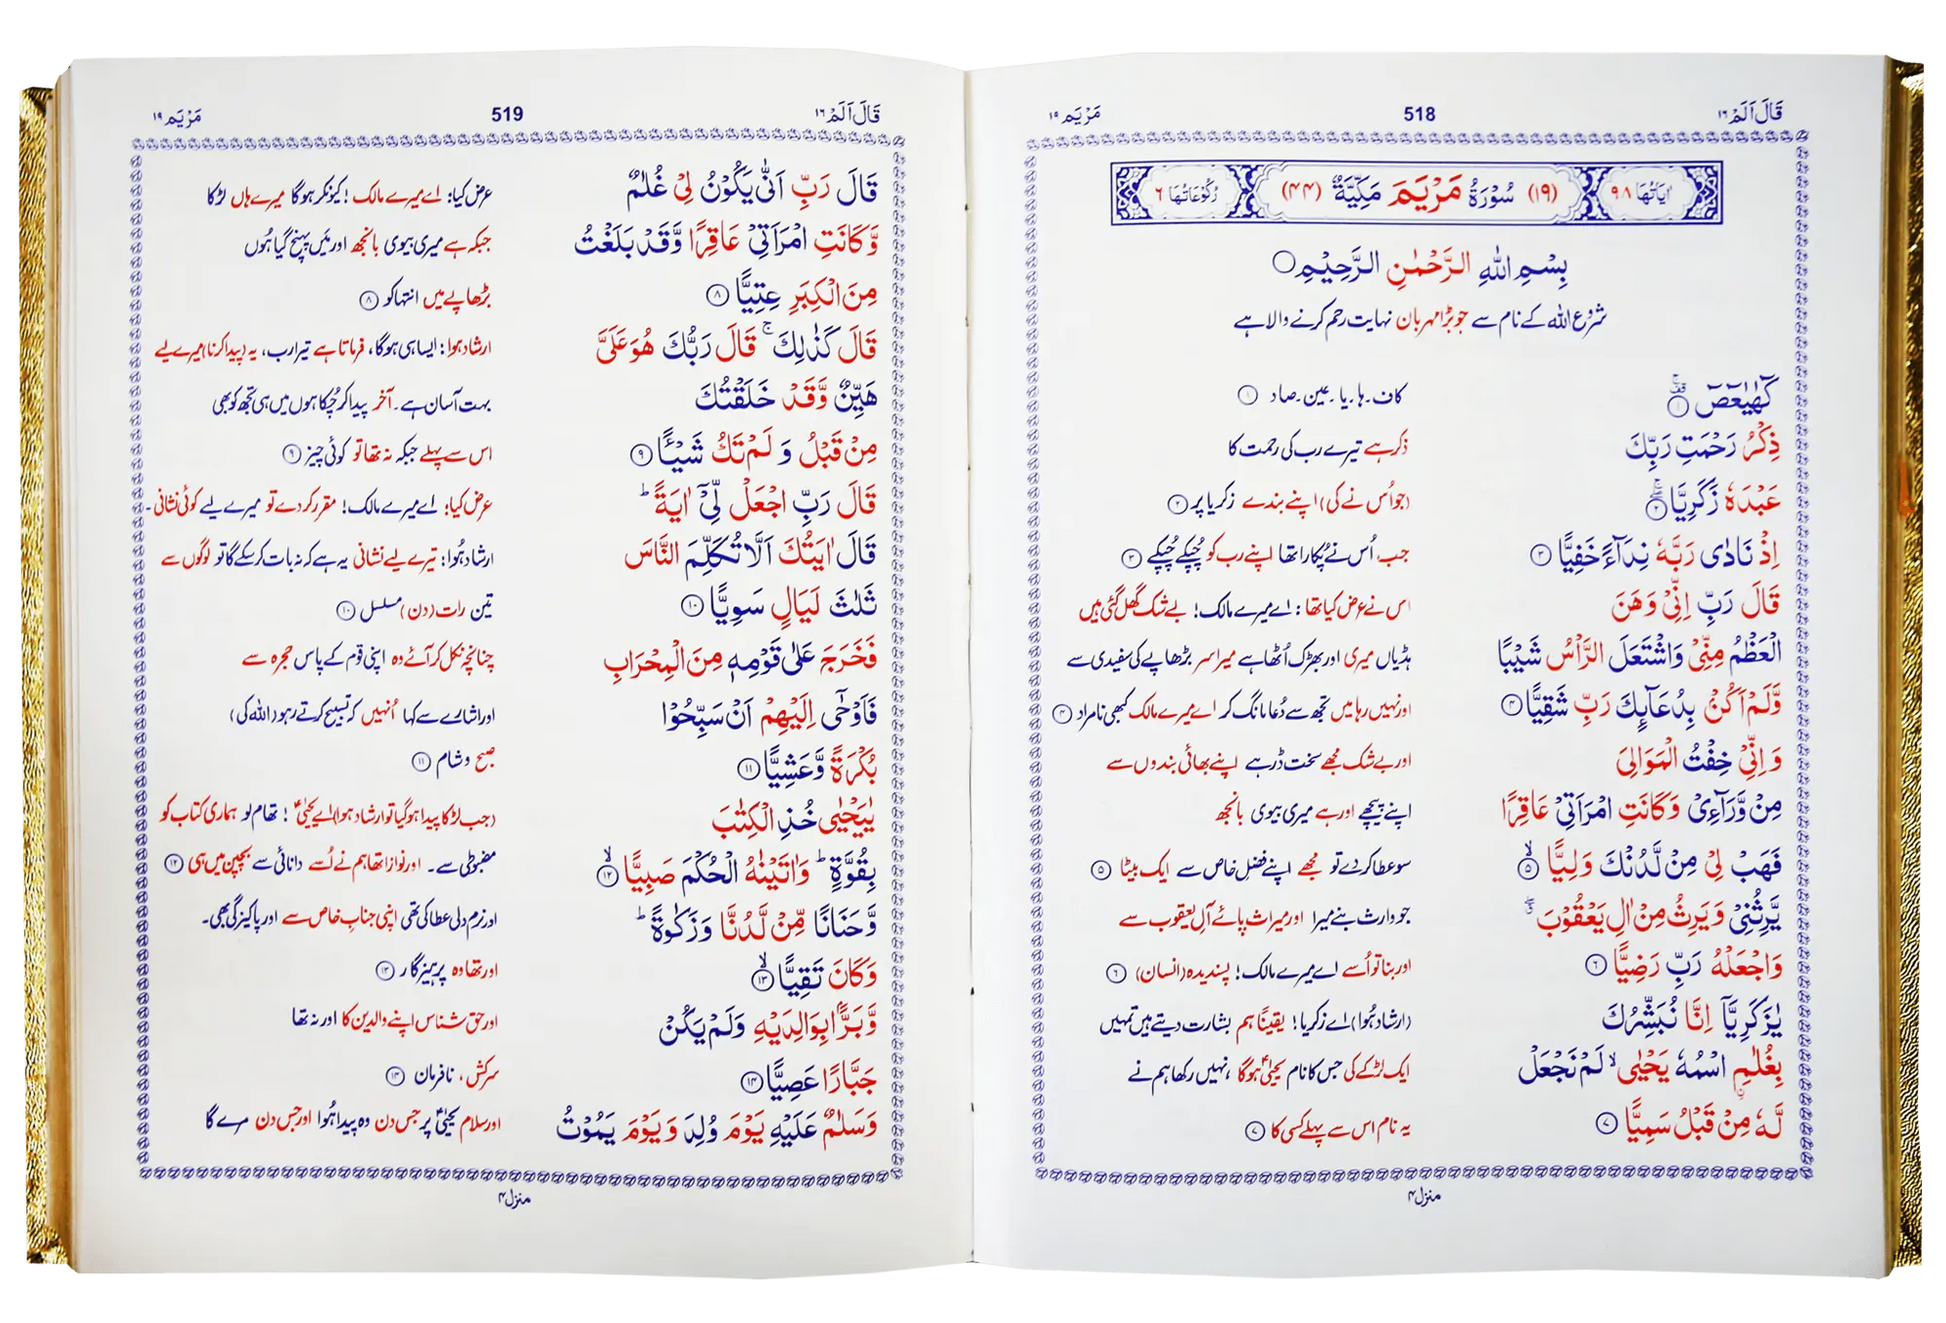 قَالَ اَلَمْ ١٦
518
مَرْيَم ١٩
اٰيَاتُهَا ٩٨
(١٩) سُوْرَةُ مَرْيَمَ مَكِّيَّةٌ (٤٤)
رُكُوْعَاتُهَا ٦
بِسْمِ اللّٰهِ الرَّحْمٰنِ الرَّحِيْمِ
شروع اللہ کے نام سے جو بڑا مہربان نہایت رحم کرنے والا ہے
كٓهٰيٰعٓصٓ ۚ قف ١ کاف۔ ہا۔ یا۔ عین۔ صاد ١
ذِكْرُ رَحْمَتِ رَبِّكَ ذکر ہے تیرے رب کی رحمت کا
عَبْدَهٗ زَكَرِيَّا ٢ (جو اُس نے کی) اپنے بندے زکریا پر ٢
اِذْ نَادٰى رَبَّهٗ نِدَآءً خَفِيًّا ٣ جب اُس نے پُکارا تھا اپنے رب کو چُپکے چُپکے ٣
قَالَ رَبِّ اِنِّيْ وَهَنَ اس نے عرض کیا تھا: اے میرے مالک! بے شک گھل گئی ہیں
الْعَظْمُ مِنِّيْ وَاشْتَعَلَ الرَّاْسُ شَيْبًا ہڈیاں میری اور بھڑک اُٹھا ہے میرا سر بڑھاپے کی سفیدی سے
وَّلَمْ اَكُنْۢ بِدُعَآئِكَ رَبِّ شَقِيًّا ٤ اور نہیں رہا میں تجھ سے دُعا مانگ کر اے میرے مالک کبھی نامراد ٤
وَاِنِّيْ خِفْتُ الْمَوَالِيَ اور بے شک مجھے سخت ڈر ہے اپنے بھائی بندوں سے
مِنْ وَّرَآءِيْ وَكَانَتِ امْرَاَتِيْ عَاقِرًا اپنے پیچھے اور ہے میری بیوی بانجھ
فَهَبْ لِيْ مِنْ لَّدُنْكَ وَلِيًّا ۙ ٥ سو عطا کردے تو مجھے اپنے فضلِ خاص سے ایک بیٹا ٥
يَّرِثُنِيْ وَيَرِثُ مِنْ اٰلِ يَعْقُوْبَ ۖ جو وارث بنے میرا اور میراث پائے آلِ یعقوب سے
وَاجْعَلْهُ رَبِّ رَضِيًّا ٦ اور بنا تو اُسے اے میرے مالک! پسندیدہ (انسان) ٦
يٰزَكَرِيَّآ اِنَّا نُبَشِّرُكَ (ارشاد ہُوا) اے زکریا! یقینًا ہم بشارت دیتے ہیں تمہیں
بِغُلٰمِ اسْمُهٗ يَحْيٰى ۙ لَمْ نَجْعَلْ ایک لڑکے کی جس کا نام یحییٰؑ ہوگا، نہیں رکھا ہم نے
لَّهٗ مِنْ قَبْلُ سَمِيًّا ٧ یہ نام اس سے پہلے کسی کا ٧
منزل ٤
قَالَ اَلَمْ ١٦
519
مَرْيَم ١٩
قَالَ رَبِّ اَنّٰى يَكُوْنُ لِيْ غُلٰمٌ عرض کیا: اے میرے مالک! کیونکر ہوگا میرے ہاں لڑکا
وَّكَانَتِ امْرَاَتِيْ عَاقِرًا وَّقَدْ بَلَغْتُ جبکہ ہے میری بیوی بانجھ اور میں پہنچ گیا ہُوں
مِنَ الْكِبَرِ عِتِيًّا ٨ بڑھاپے میں انتہا کو ٨
قَالَ كَذٰلِكَ ۚ قَالَ رَبُّكَ هُوَ عَلَيَّ ارشاد ہوا: ایسا ہی ہوگا، فرماتا ہے تیرا رب، یہ (پیدا کرنا) میرے لیے
هَيِّنٌ وَّقَدْ خَلَقْتُكَ بہت آسان ہے۔ آخر پیدا کر چُکا ہوں میں ہی تجھ کو بھی
مِنْ قَبْلُ وَلَمْ تَكُ شَيْـًٔا ٩ اس سے پہلے جبکہ نہ تھا تو کوئی چیز ٩
قَالَ رَبِّ اجْعَلْ لِّيْٓ اٰيَةً ؕ عرض کیا: اے میرے مالک! مقرر کردے تو میرے لیے کوئی نشانی۔
قَالَ اٰيَتُكَ اَلَّا تُكَلِّمَ النَّاسَ ارشاد ہُوا: تیرے لیے نشانی یہ ہے کہ نہ بات کرسکے گا تو لوگوں سے
ثَلٰثَ لَيَالٍ سَوِيًّا ١٠ تین رات (دن) مسلسل ١٠
فَخَرَجَ عَلٰى قَوْمِهٖ مِنَ الْمِحْرَابِ چنانچہ نکل کر آئے وہ اپنی قوم کے پاس حجرہ سے
فَاَوْحٰٓى اِلَيْهِمْ اَنْ سَبِّحُوْا اور اشارے سے کہا اُنہیں کہ تسبیح کرتے رہو (اللہ کی)
بُكْرَةً وَّعَشِيًّا ١١ صبح وشام ١١
يٰيَحْيٰى خُذِ الْكِتٰبَ (جب لڑکا پیدا ہو گیا تو ارشاد ہوا) اے یحییٰؑ! تھام لو ہماری کتاب کو
بِقُوَّةٍ ؕ وَاٰتَيْنٰهُ الْحُكْمَ صَبِيًّا ۙ ١٢ مضبوطی سے۔ اور نوازا تھا ہم نے اُسے دانائی سے بچپن میں ہی ١٢
وَّحَنَانًا مِّنْ لَّدُنَّا وَزَكٰوةً ؕ اور نرم دلی عطا کی تھی اپنی جنابِ خاص سے اور پاکیزگی بھی۔
وَكَانَ تَقِيًّا ۙ ١٣ اور تھا وہ پرہیزگار ١٣
وَّبَرًّۢا بِوَالِدَيْهِ وَلَمْ يَكُنْ اور حق شناس اپنے والدین کا اور نہ تھا
جَبَّارًا عَصِيًّا ١٤ سرکش، نافرمان ١٤
وَسَلٰمٌ عَلَيْهِ يَوْمَ وُلِدَ وَيَوْمَ يَمُوْتُ اور سلام یحییٰؑ پر جس دن وہ پیدا ہُوا اور جس دن مرے گا
منزل ٤